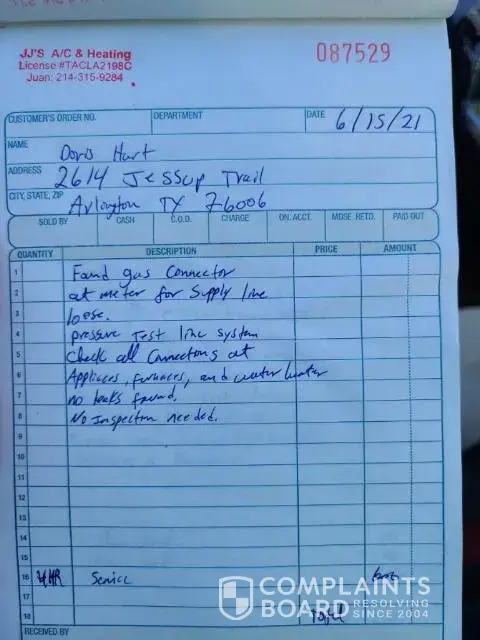 JJ'S A/C & Heating
License #TACLA2198C
Juan: 214-315-9284
087529
CUSTOMER'S ORDER NO. DEPARTMENT DATE 6/15/21
NAME Doris Hart
ADDRESS 2614 Jessup Trail
CITY, STATE, ZIP Arlington TX 76006
SOLD BY CASH C.O.D. CHARGE ON. ACCT. MDSE. RETD. PAID OUT
QUANTITY DESCRIPTION PRICE AMOUNT
1 Found gas Connector
2 at meter for Supply line
3 loose.
4 pressure Test line system
5 Check all Connections at
6 Appliaces, furnaces, and water heater
7 no leaks found.
8 No Inspection needed.
9
10
11
12
13
14
15
16 4HR Service
17
18 Total
RECEIVED BY
COMPLAINTS
BOARD RESOLVING
SINCE 2004